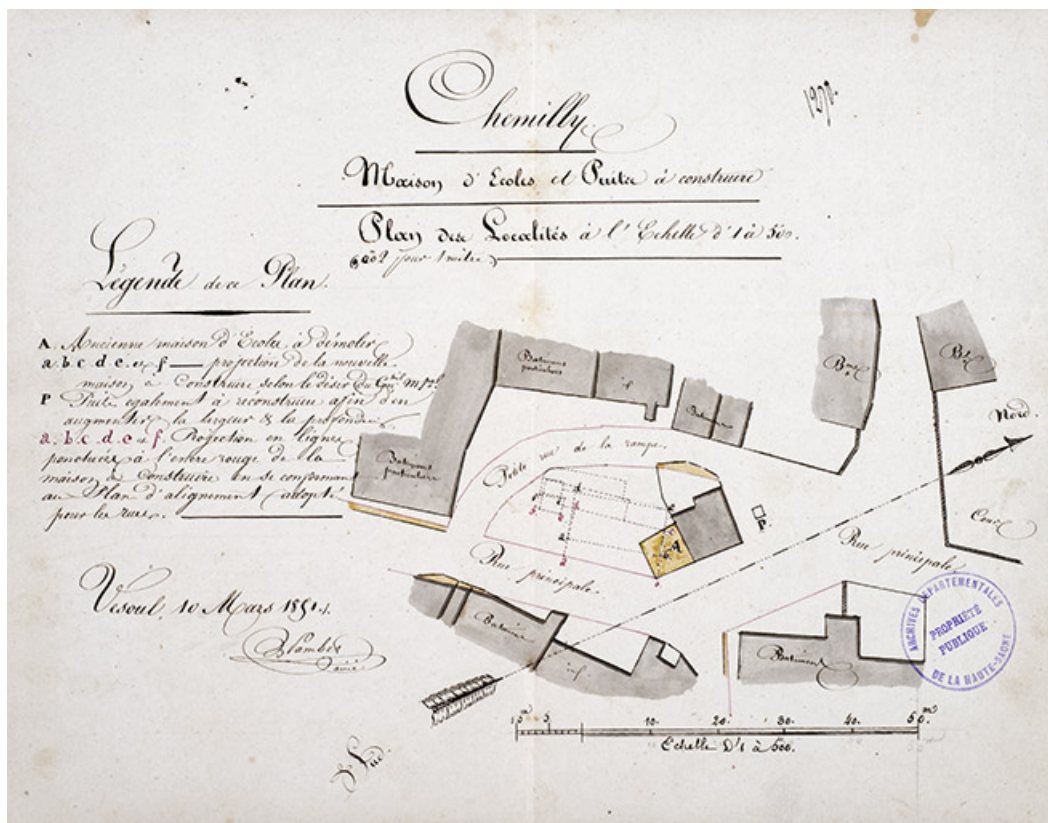 Chemilly.
1270.
Maison d'Ecoles et Puits à construire
Plan des Localités à l'Echelle d'1 à 500.
pour 1 mètre
Légende de ce Plan.
A. Ancienne maison d'Ecole à démolir
a. b. c. d. e. et f. projection de la nouvelle
maison à Construire selon le désir du
P Puits également à reconstruire afin d'en
augmenter la largeur & la profondeur.
a. b. c. d. e et f. Projection en lignes
ponctuées à l'encre rouge de la
maison à Construire en se conformant
au Plan d'alignement adopté
pour les rues.
Vesoul, 10 Mars
Batimens
particuliers
id
Batimens
Bt
Nord.
Batimens
particuliers
Petite rue de la rampe.
P.
Cour
Rue principale.
Rue principale.
Batiment
id
Batiment
ARCHIVES DÉPARTEMENTALES
PROPRIÉTÉ
PUBLIQUE
DE LA HAUTE-SAÔNE
Sud.
10 5 10. 20. 30. 40. 50. m
Echelle D'1 à 500.